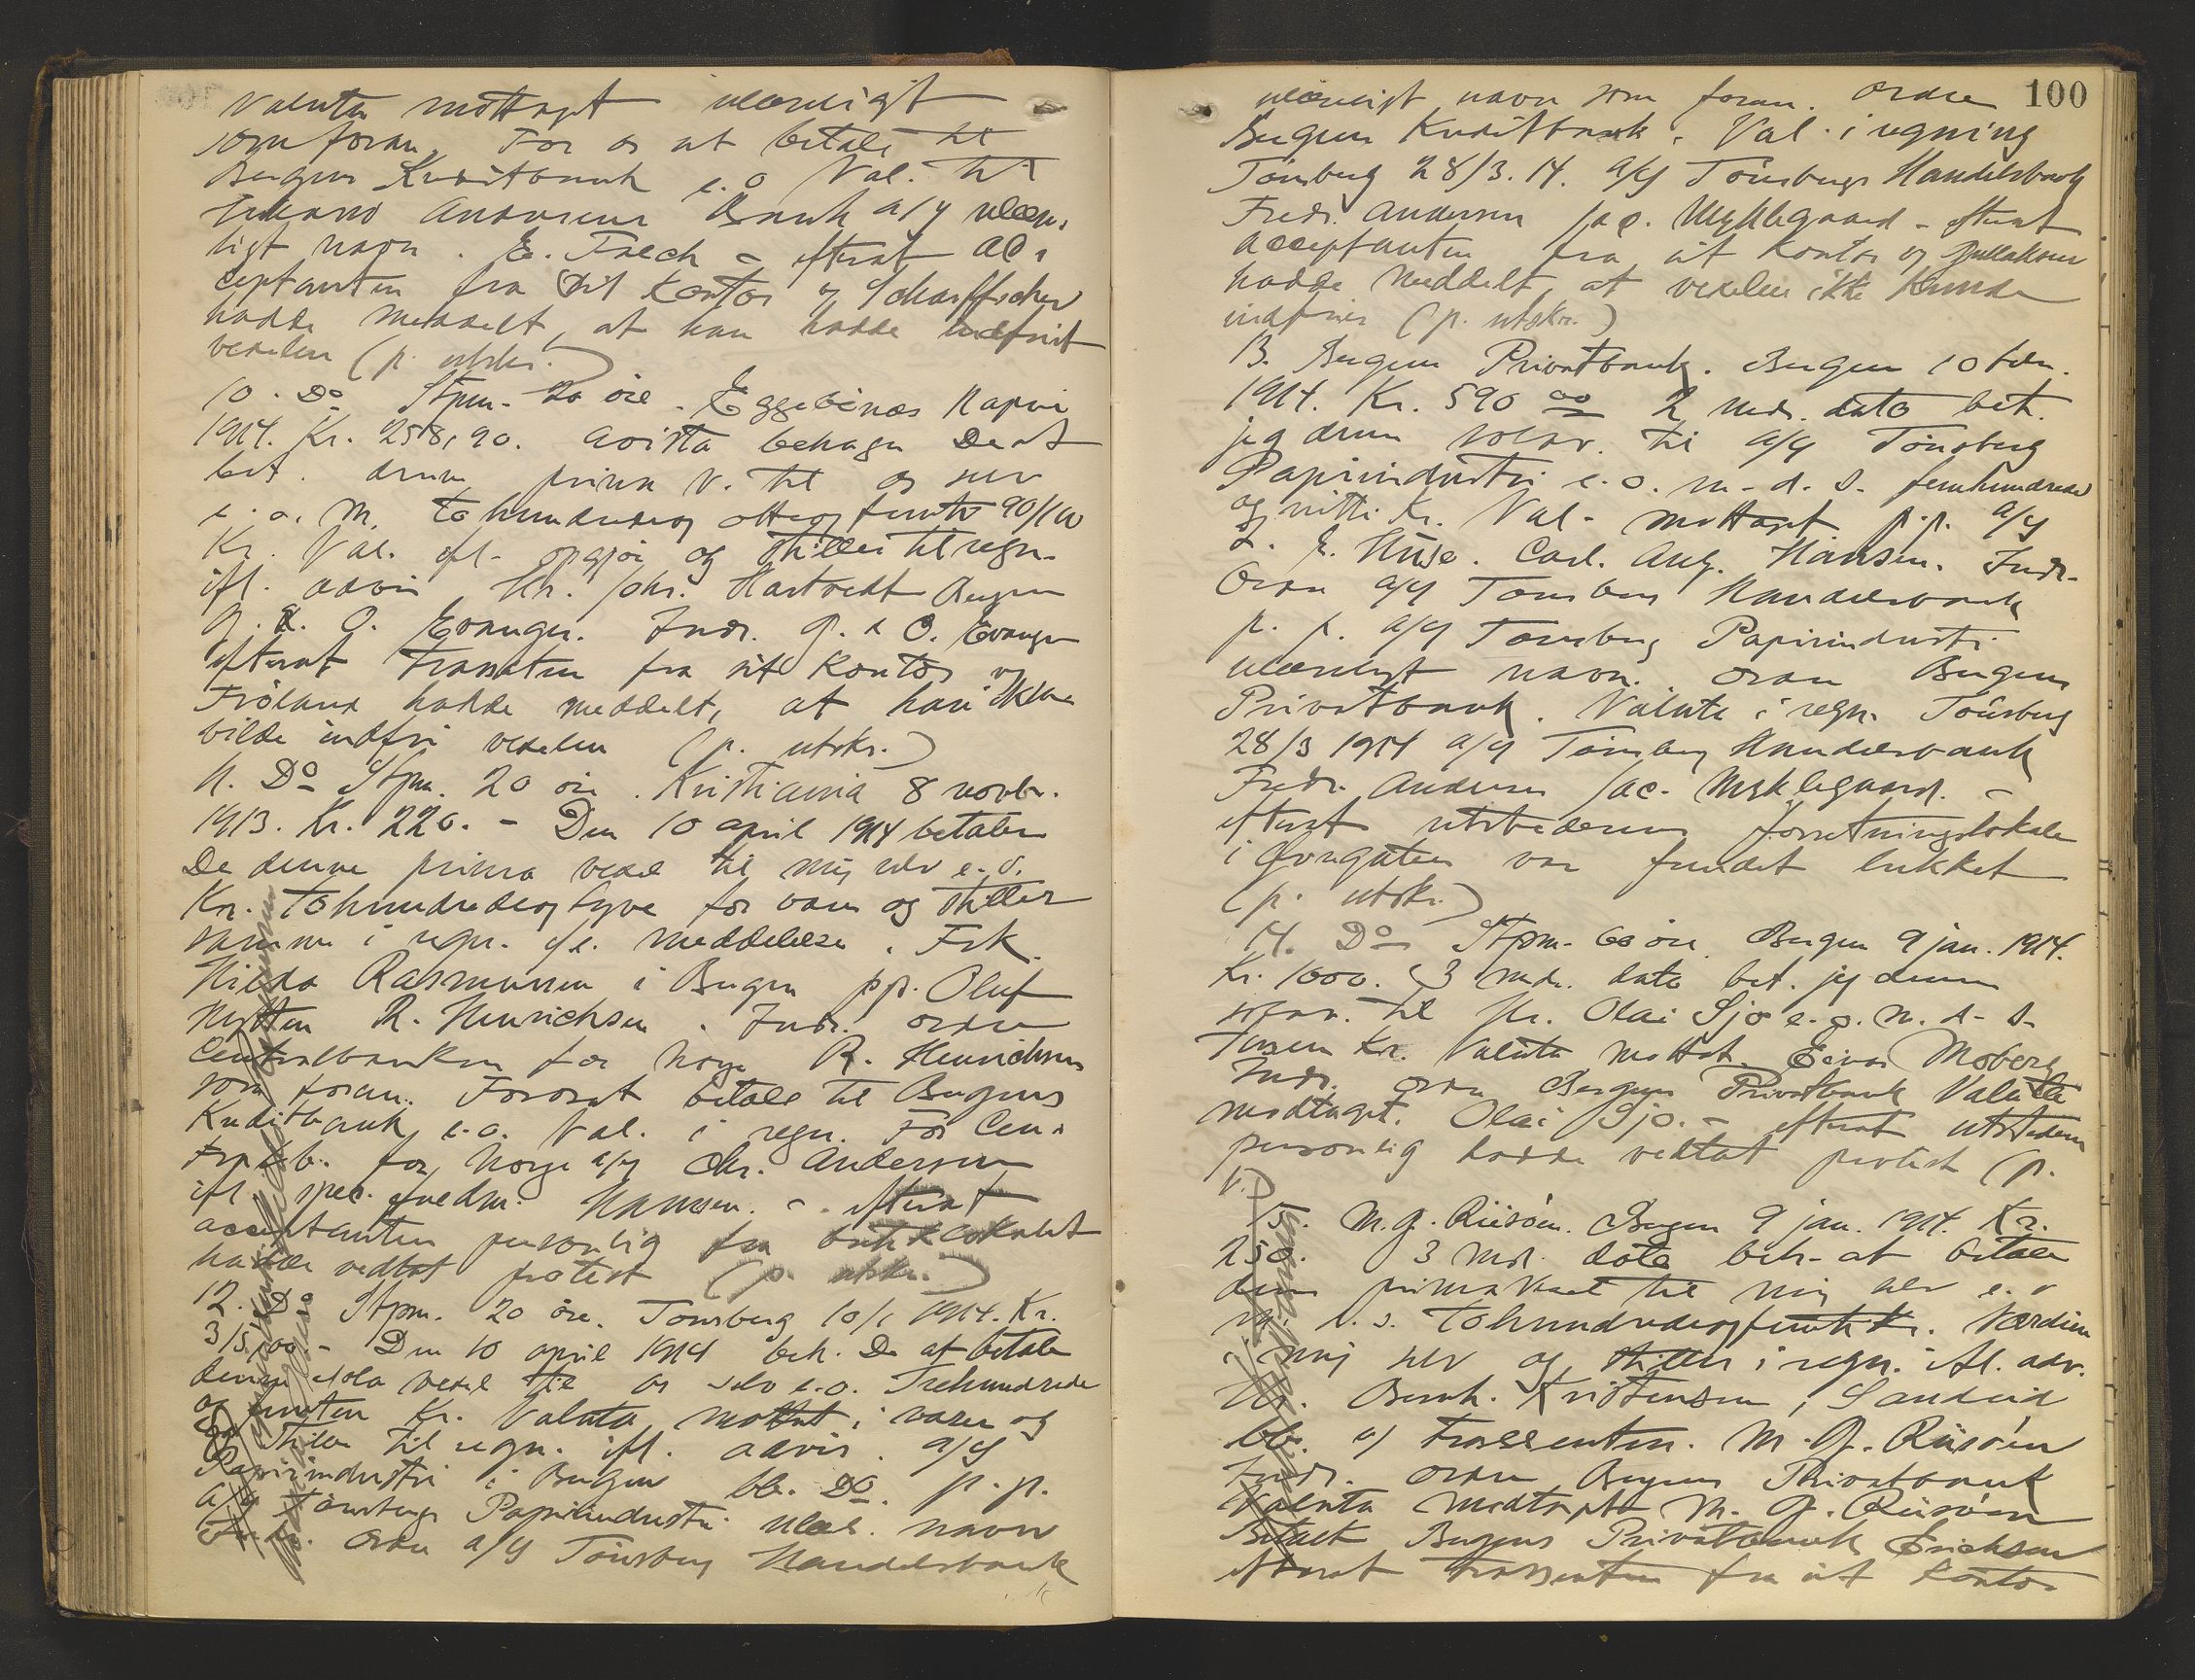 Valuta mottaget ulæseligt
som foran. For os at betale til
Bergens Kreditbank e.o. Val. til
Andresens Bank a/y ulæse-
ligt navn. E. Frech - efterat ac-
ceptanten fra sit kontor
hadde meddelt, at han hadde indfriet
vekselen (p. utskr.)
10. Do Stpm. 20 øre. Eggebönæs
1914. Kr. 258,90. avista behager De at
bet. denne prima v. til os selv
e. o. m. tohundredeog otteogfemti 90/100
Kr. Val. ifl. opgjör og stilles til regn.
ifl. advis Hr. Johs. Hartvedt Bergen
G. & O. Evanger. Indr. G. & O. Evanger
efterat trassaten fra sit kontor v
Fröland hadde meddelt, at han ikke
vilde indfri vekselen (p. utskr.)
11. Do Stpm. 20 øre. Kristiania 8 novbr.
1913. Kr. 220. - Den 10 april 1914 betaler
De denne prima veksel til mig selv e. o.
Kr. Tohundredeogtyve for varer og stiller
samme i regn. ifl. meddelelse. Frk.
Hilda Rasmussen i Bergen pp. Oluf
R. Henrichsen. Indr. ordre
Centralbanken for Norge R. Henrichsen
som foran. For os at betale til Bergens
Kreditbank e.o. Val. i regn. For Cen-
tralb. for Norge a/y Chr. Andersen
ifl. spec. Hansen. - efterat
acceptanten personlig fra butiklokalet
hadde vedtat protest (p. utskr.)
12. Do Stpm. 20 øre. Tønsberg 10/1 1914. Kr.
315,00 - Den 10 april 1914 beh. De at betale
denne sola veksel til os selv e.o. Trehundrede
og femten Kr. Valuta mottat i varer og
stilles til regn. ifl. advis. a/y
Papirindustri i Bergen bb. Do. p.p.
a/y Tönsbergs Papirindustri ulæs. navn
Ordre a/y Tönsberg Handelsbank
100
ulæseligt navn som foran. Ordre
Bergens Kreditbank. Val. i regning
Tönsberg 28/3. 14. a/y Tönsbergs Handelsbank
Fredr. Andersen Jac. Myklegaard - efterat
acceptanten fra sit kontor
hadde meddelt, at vekselen ikke kunde
indfries (p. utskr.)
13. Bergens Privatbank. Bergen 10 febr.
1914. Kr. 590 00 2 mdr. dato bet.
jeg denne solav. til a/y Tönsberg
Papirindustri e.o. m.d.s. femhundrede
og nitti Kr. Val. mottaget p.p. a/y
Carl Aug. Hansen. Indr.
Ordre a/y Tönsberg Handelsbank
p. p. a/y Tönsberg Papirindustri
ulæseligt navn. ordre Bergens
Privatbank. Valuta i regn. Tönsberg
28/3 1914 a/y Tönsberg Handelsbank
Fredr. Andersen Jac. Myklegaard. -
efterat utstederens forretningslokale
i var fundet lukket
(p. utskr.)
14. Do Stpm. 60 øre. Bergen 9 jan. 1914.
Kr. 1000. 3 mdr. dato bet. jeg denne
solav. til Hr. Olai Sjo e.o. m. d. s.
Tusen Kr. Valuta mottat. Einar Moberg
Indr. ordre Bergens Privatbank Valuta
modtaget. Olai Sjo. - efterat utstederen
personlig hadde vedtat protest (p.
15. M. G. Riisöen. Bergen 9 jan. 1914. Kr.
250. 3 mdr. dato beh. at betale
denne primaveksel til mig selv e. o
m. d. s. Tohundredeogfemti Kr. Værdien
i mig selv og stilles i regn. ifl. adv.
Hr. Bernh. Kristensen, Sandeid
bb. a/ Trassenten. M. G. Riisöen
Indr. ordre Bergens Privatbank
Valuta modtaget M. G. Riisöen
Betalt Bergens Privatbank Erichsen
efterat trassenten fra sit kontor